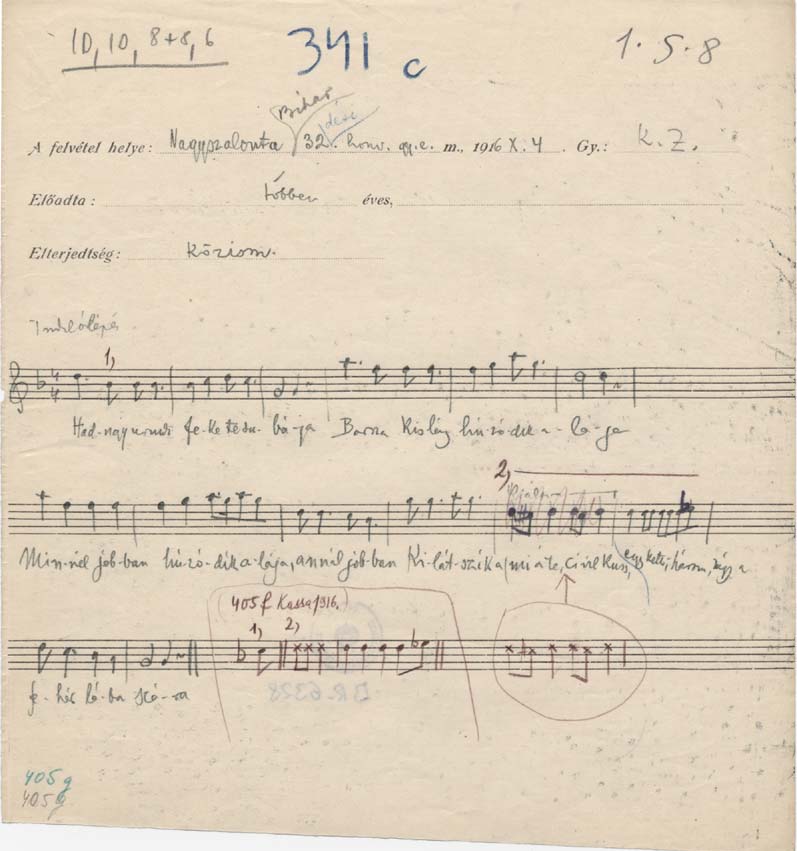 10, 10, 8+8, 6 341 c 1.5.8
Bihar dési
A felvétel helye: Nagyszalonta 32. honv. gy. e. m., 1916 X. 4. Gy.: K. Z.
Előadta: többen éves,
Elterjedtség: Közism.
Indulólépés
1,
Had-nagy fe-ke-te su-bá-ja Barna kislány hú-zó-dik a-lá-ja
2,
Min-nél job-ban hú-zó-dik a-lája, annál job-ban Ki-lát-szik a, mi a te, civil Kuss, egy, kettő, három, négy a
405 f Kassa 1916.
1, 2,
fe-hér lá-ba szá-ra
D.R. 6328
405 g
405 g